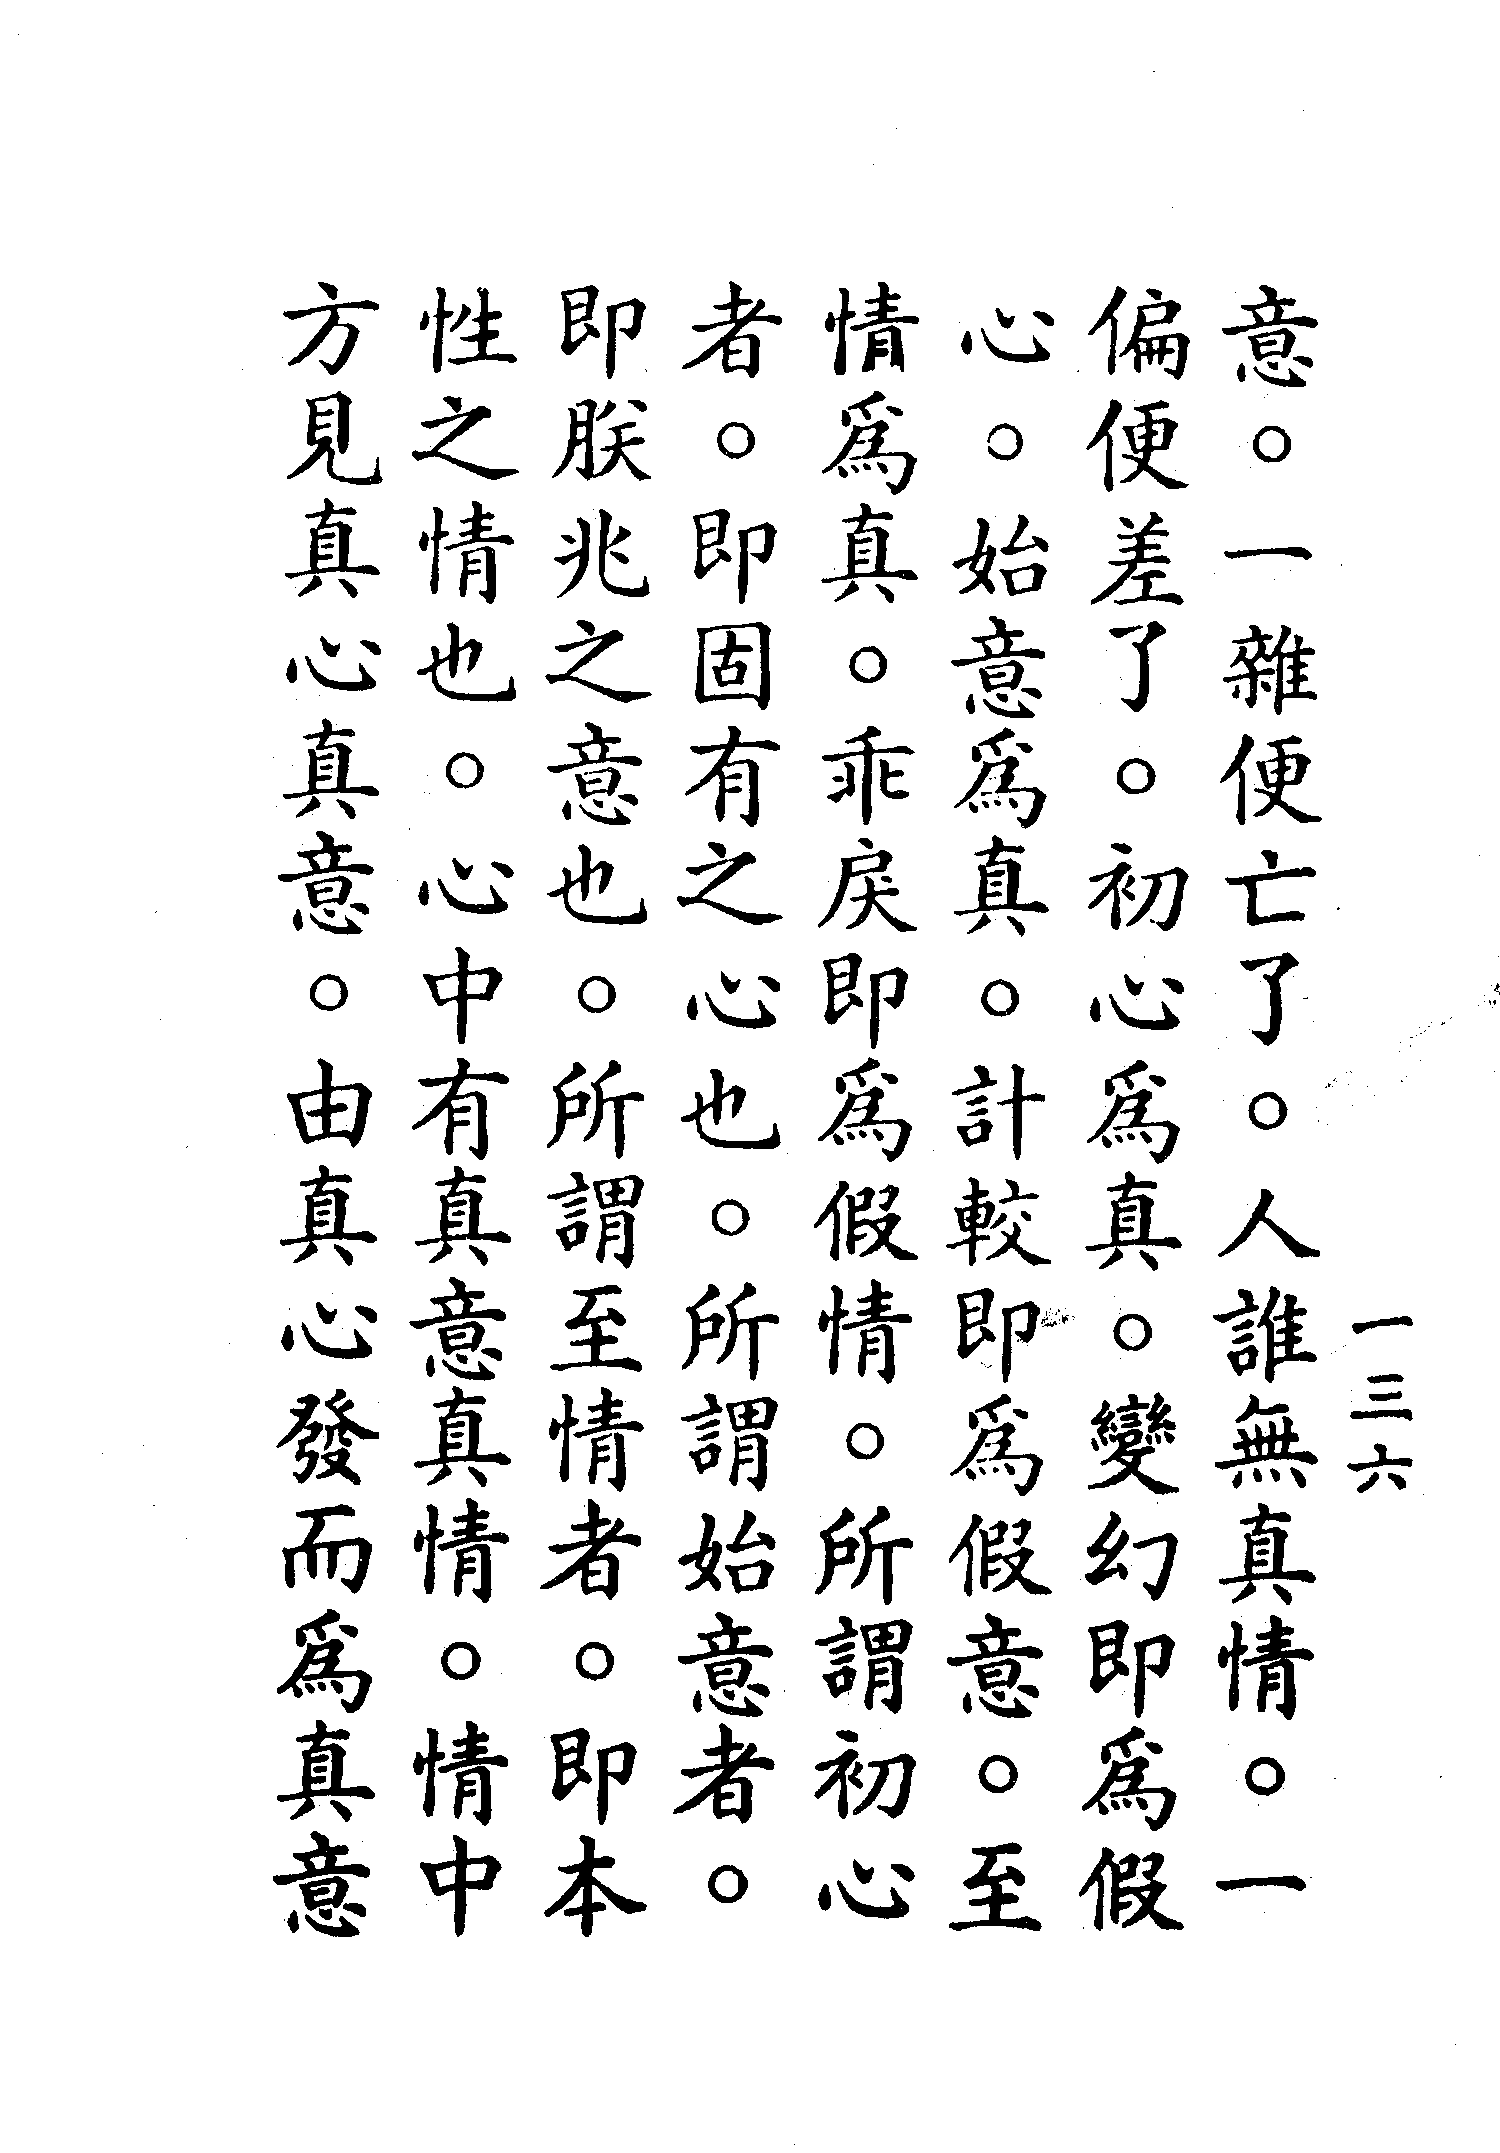 一三六
意。一雜便亡了。人誰無真情。一
偏便差了。初心為真。變幻即為假
心。始意為真。計較即為假意。至
情為真。乖戾即為假情。所謂初心
者。即固有之心也。所謂始意者。
即朕兆之意也。所謂至情者。即本
性之情也。心中有真意真情。情中
方見真心真意。由真心發而為真意